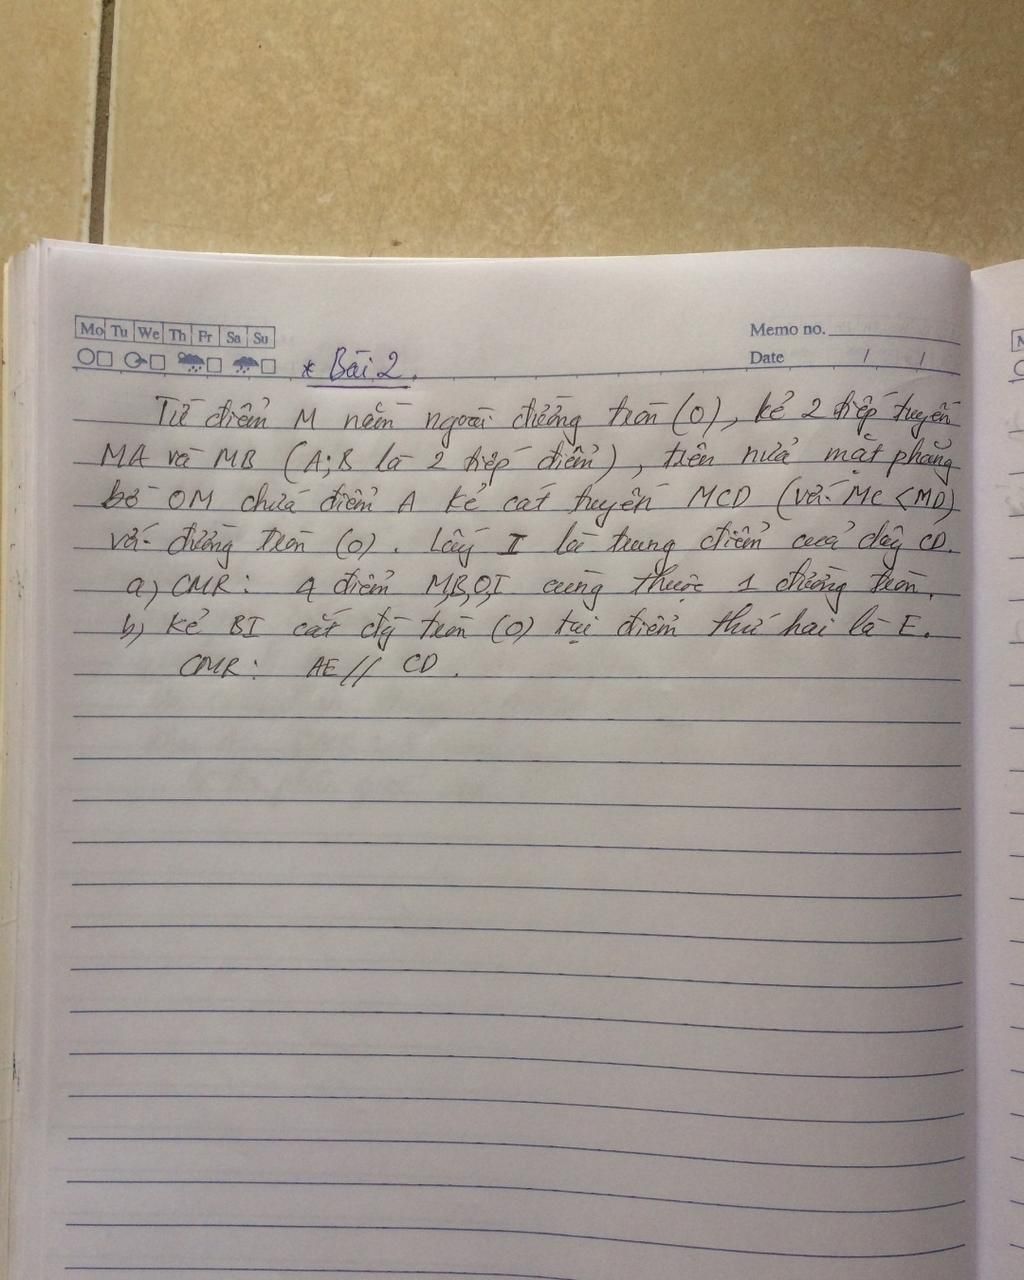 Mo Tu We Th Fr Sa Su
Memo no.
Date / /
* Bài 2.
Từ điểm M nằm ngoài đường tròn (O), kẻ 2 tiếp tuyến
MA và MB (A;B là 2 tiếp điểm), trên nửa mặt phẳng
bờ OM chứa điểm A kẻ cát tuyến MCD (với MC < MD)
với đường tròn (O). Lấy I là trung điểm của dây CD.
a) CMR: 4 điểm M,B,O,I cùng thuộc 1 đường tròn.
b) Kẻ BI cắt đg tròn (O) tại điểm thứ hai là E.
CMR: AE // CD.